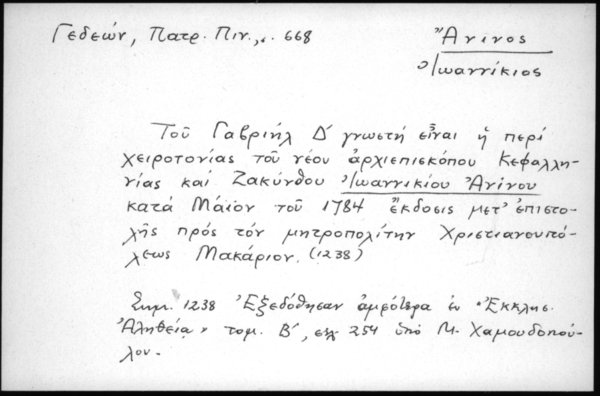 Γεδεών, Πατρ. Πιν., σ. 668
Ἄνινος
Ἰωαννίκιος
Τοῦ Γαβριήλ Δ' γνωστή εἶναι ἡ περί
χειροτονίας τοῦ νέου ἀρχιεπισκόπου Κεφαλλη-
νίας καί Ζακύνθου Ἰωαννικίου Ἀνίνου
κατά Μάϊον τοῦ 1784 ἔκδοσις μετ' ἐπιστο-
λῆς πρός τόν μητροπολίτην Χριστιανουπό-
λεως Μακάριον. (1238)
Σημ. 1238 Ἐξεδόθησαν ἀμφότερα ἐν "Ἐκκλησ.
Ἀληθείᾳ" τομ. Β', σελ 254 ὑπό Μ. Χαμουδοπού-
λου.-